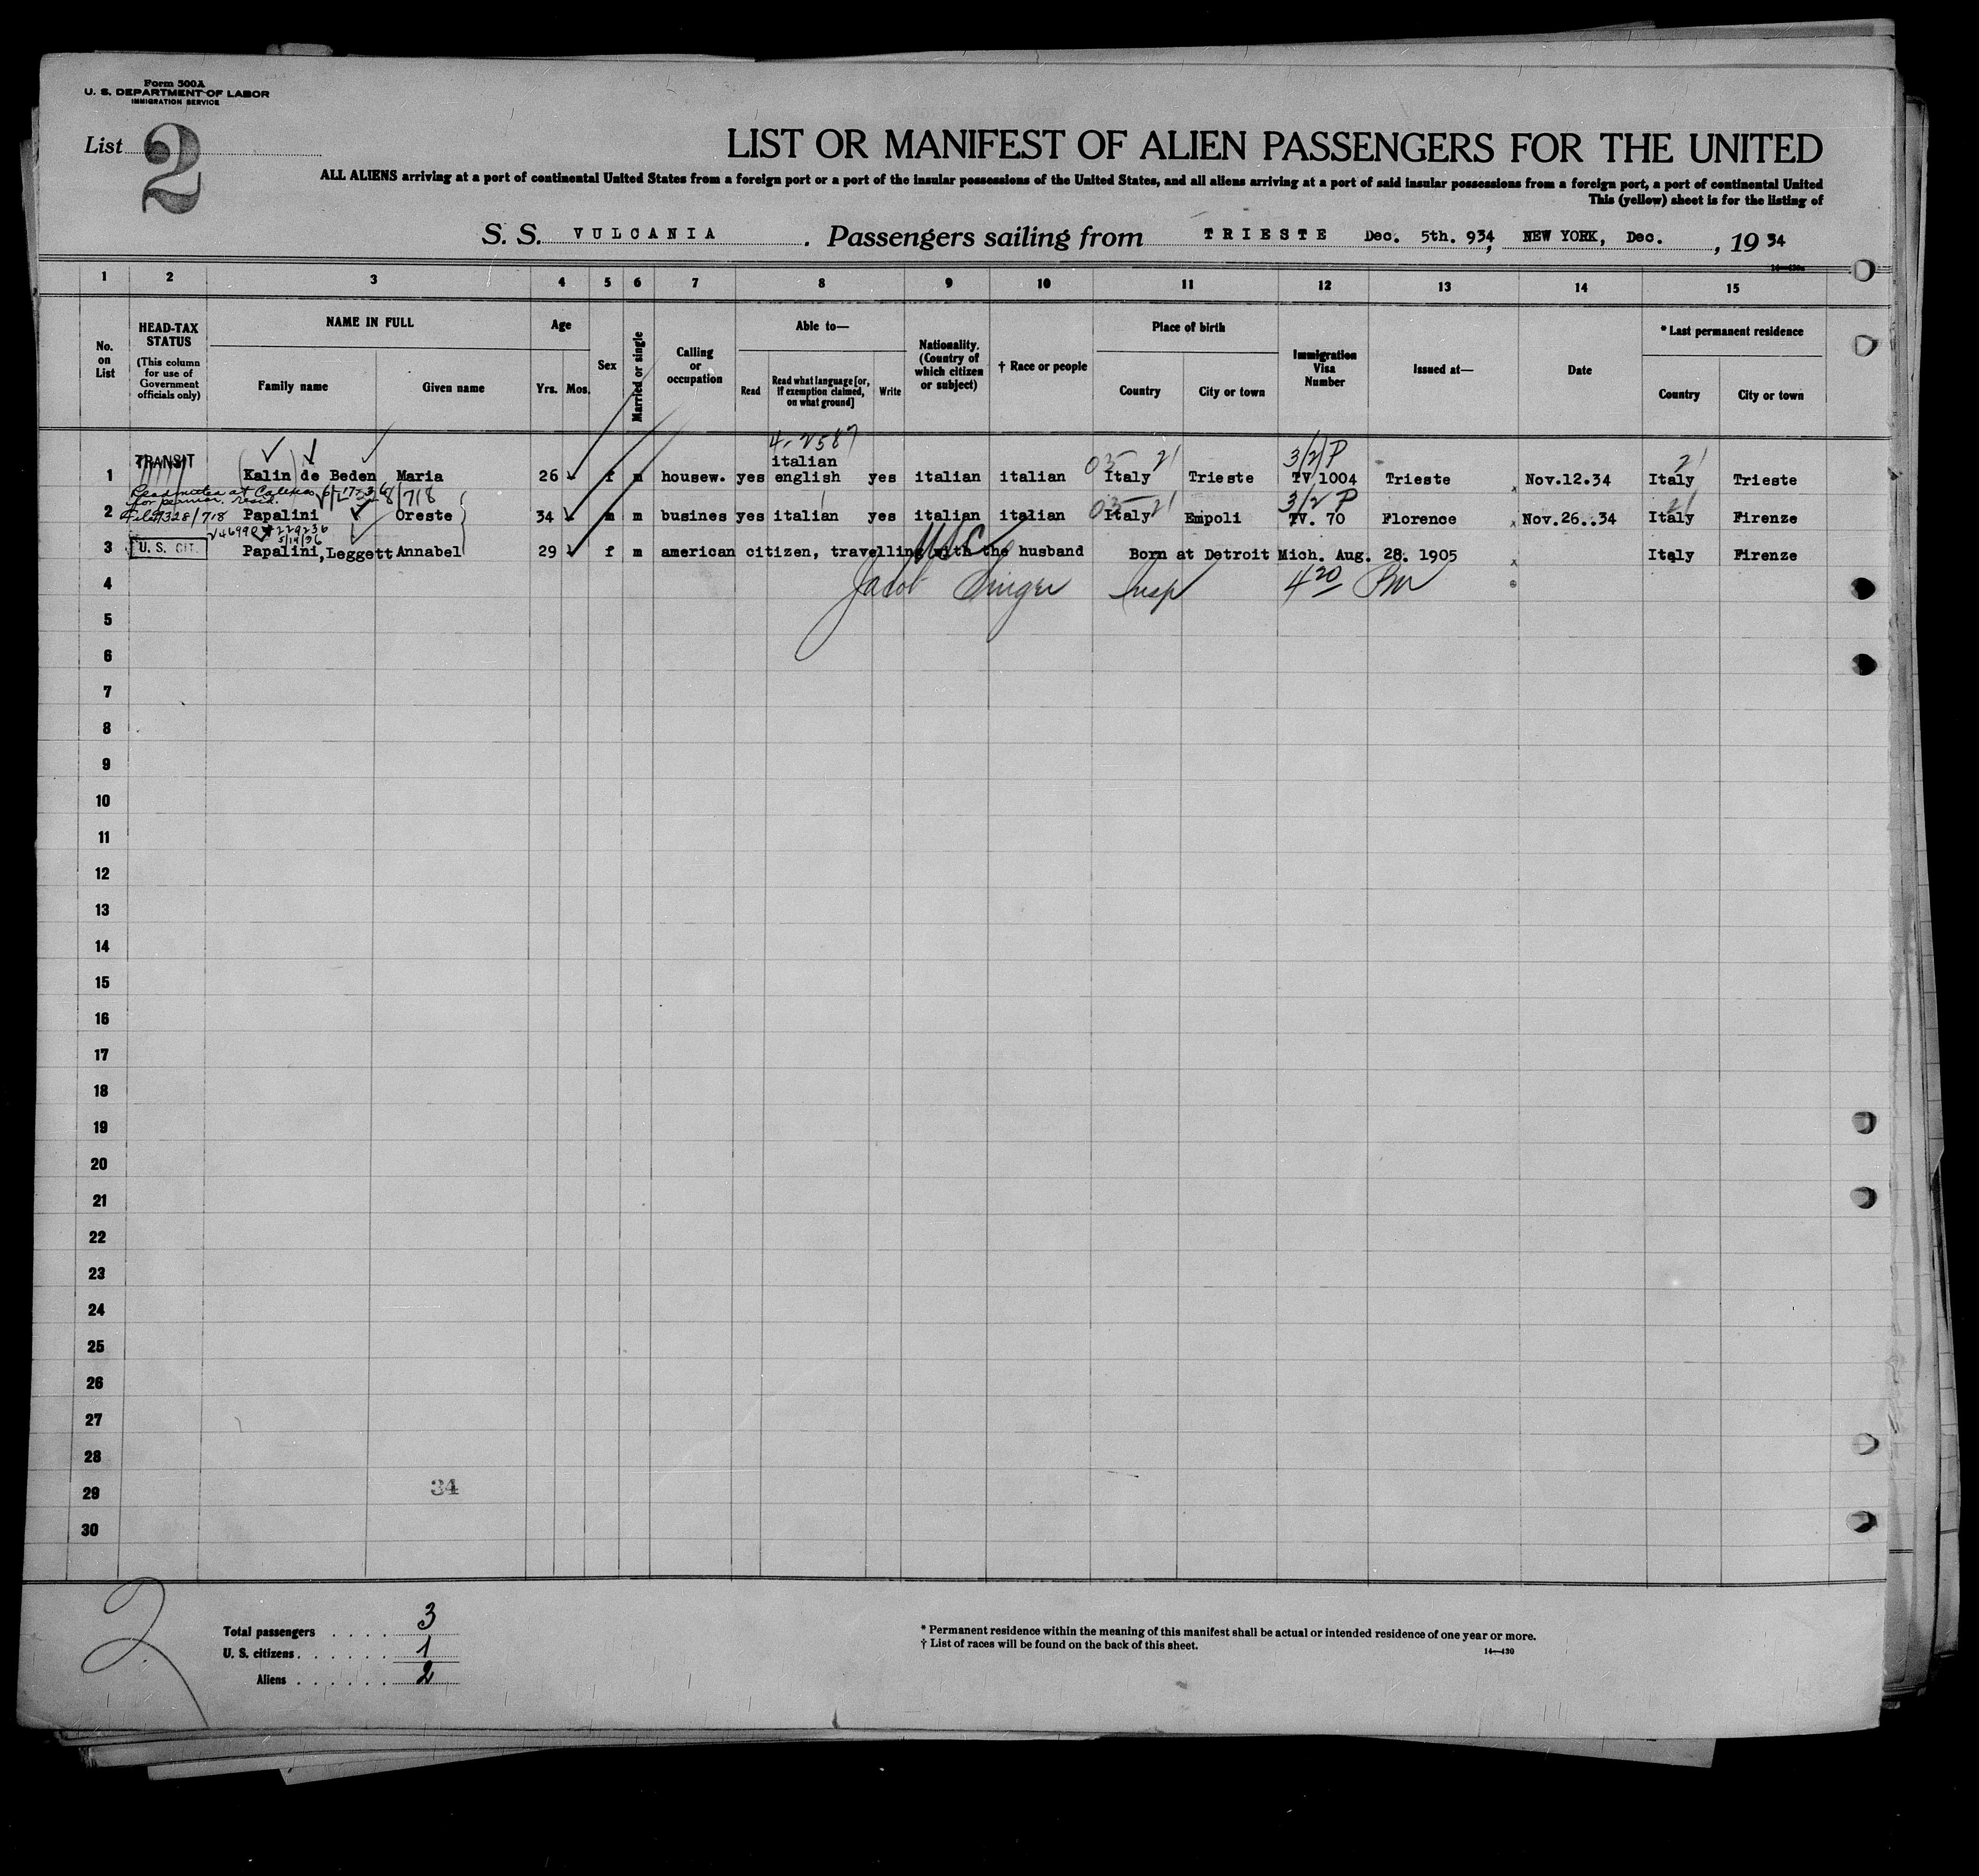 Form 500A
U. S. DEPARTMENT OF LABOR
IMMIGRATION SERVICE
List 2
LIST OR MANIFEST OF ALIEN PASSENGERS FOR THE UNITED
ALL ALIENS arriving at a port of continental United States from a foreign port or a port of the insular possessions of the United States, and all aliens arriving at a port of said insular possessions from a foreign port, a port of continental United
This (yellow) sheet is for the listing of
S. S. VULCANIA . Passengers sailing from TRIESTE Dec. 5th. 934, NEW YORK, Dec. , 19 34
1 2 3 4 5 6 7 8 9 10 11 12 13 14 15
No. on List
HEAD-TAX STATUS
(This column for use of Government officials only)
NAME IN FULL
Family name Given name
Age
Yrs. Mos.
Sex
Married or single
Calling or occupation
Able to—
Read Read what language [or, if exemption claimed, on what ground] Write
Nationality. (Country of which citizen or subject)
† Race or people
Place of birth
Country City or town
Immigration Visa Number
Issued at—
Date
* Last permanent residence
Country City or town
4-2587
TRANSIT italian 3/2/P
1 Kalin de Beden Maria 26 f m housew. yes english yes italian italian 03 Italy 21 Trieste TV 1004 Trieste Nov.12.34 Italy 21 Trieste
Readmitted at Calexico 6-17-36
for perman. resid. 3/2 P
2 Papalini Oreste 34 m m busines yes italian yes italian italian 03 Italy 21 Empoli TV. 70 Florence Nov.26..34 Italy 21 Firenze
5/19/36
3 U. S. CIT. Papalini,Leggett Annabel 29 f m american citizen, travelling with the husband Born at Detroit Mich. Aug. 28. 1905 Italy Firenze
USC
4 Jacob Singer Insp 4 20 PM
5
6
7
8
9
10
11
12
13
14
15
16
17
18
19
20
21
22
23
24
25
26
27
28
29 34
30
2
Total passengers . . . . 3
U. S. citizens . . . . . . 1
Aliens . . . . . . 2
* Permanent residence within the meaning of this manifest shall be actual or intended residence of one year or more.
† List of races will be found on the back of this sheet.
14—430